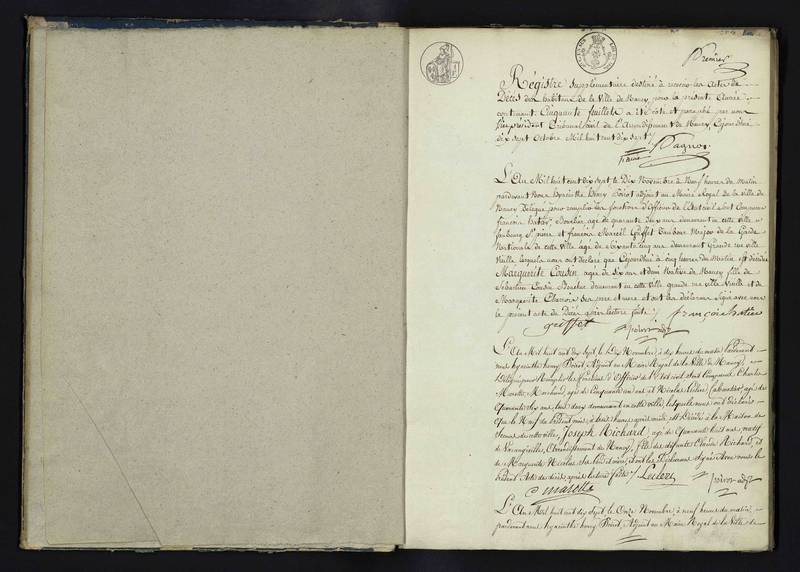 Premier
Régistre supplémentaire destiné à recevoir les actes de
Décès des habitans de la Ville de Nancy pour la présente Année
contenant Cinquante feuillets a été coté et paraphé par nous
Vice président Tribunal Civil de l'Arrondissement de Nancy, Cejourd'hui
dix sept Octobre Mil huit cent dix sept
Pagnot
L'An Mil huit cent dix sept le Dix Novembre à Neuf heures du Matin
pardevant Nous Hyacinthe Henry Poirot adjoint au Maire Royal de la ville de
Nancy Délégué pour remplir les fonctions d'Officier de l'Etat civil sont Comparus
François Boucher, agé de quarante deux ans demeurant en cette ville
faubourg St pierre et françois Griffet Tambour Major de la Garde
Nationale de cette Ville agé de Soixante cinq ans demeurant Grande rue ville
Vieille lesquels nous ont déclaré que Cejourd'hui à cinq heures du Matin est décédée
Marguerite Cousin agée de Six ans et demi Native de Nancy fille de
Sébastien Cousin Boucher demeurant en cette Ville grande rue ville Vieille et de
Marguerite ses pere et mere et ont les déclarans Signé avec nous
le présent acte de Décès après lecture faite
griffet
L'An Mil huit cent dix Sept, le Dix Novembre, à dix heures du matin pardevant
nous hyacinthe henry Poirot, Adjoint au Maire Royal de la Ville de Nancy
Délégué pour Remplir les fonctions d'Officier de l'Etat civil sont comparus Charles
Marotte, Marchand, agé de Cinquante un ans et Nicolas Leclerc Cabaretier, agé de
Quarante six ans, tous deux demeurant en cette ville, lesquels nous ont déclaré
que le Neuf du présent mois, à trois heures après midi, est décédé à la Maison de
Secours de cette ville, Joseph Richard agé de Quarante huit ans, natif
de Varangéville, Arrondissement de Nancy, fils des défunts Claude Richard, et
de Marguerite Nicolas Ses pere et mere, et ont les Déclarans Signé Avec nous le
Présent Acte de décès, après lecture faite Leclerc
C marotte
L'An Mil huit cent dix Sept, le Onze Novembre, à neuf heures du matin,
pardevant nous hyacinthe henry Poirot, Adjoint au Maire Royal de la Ville de